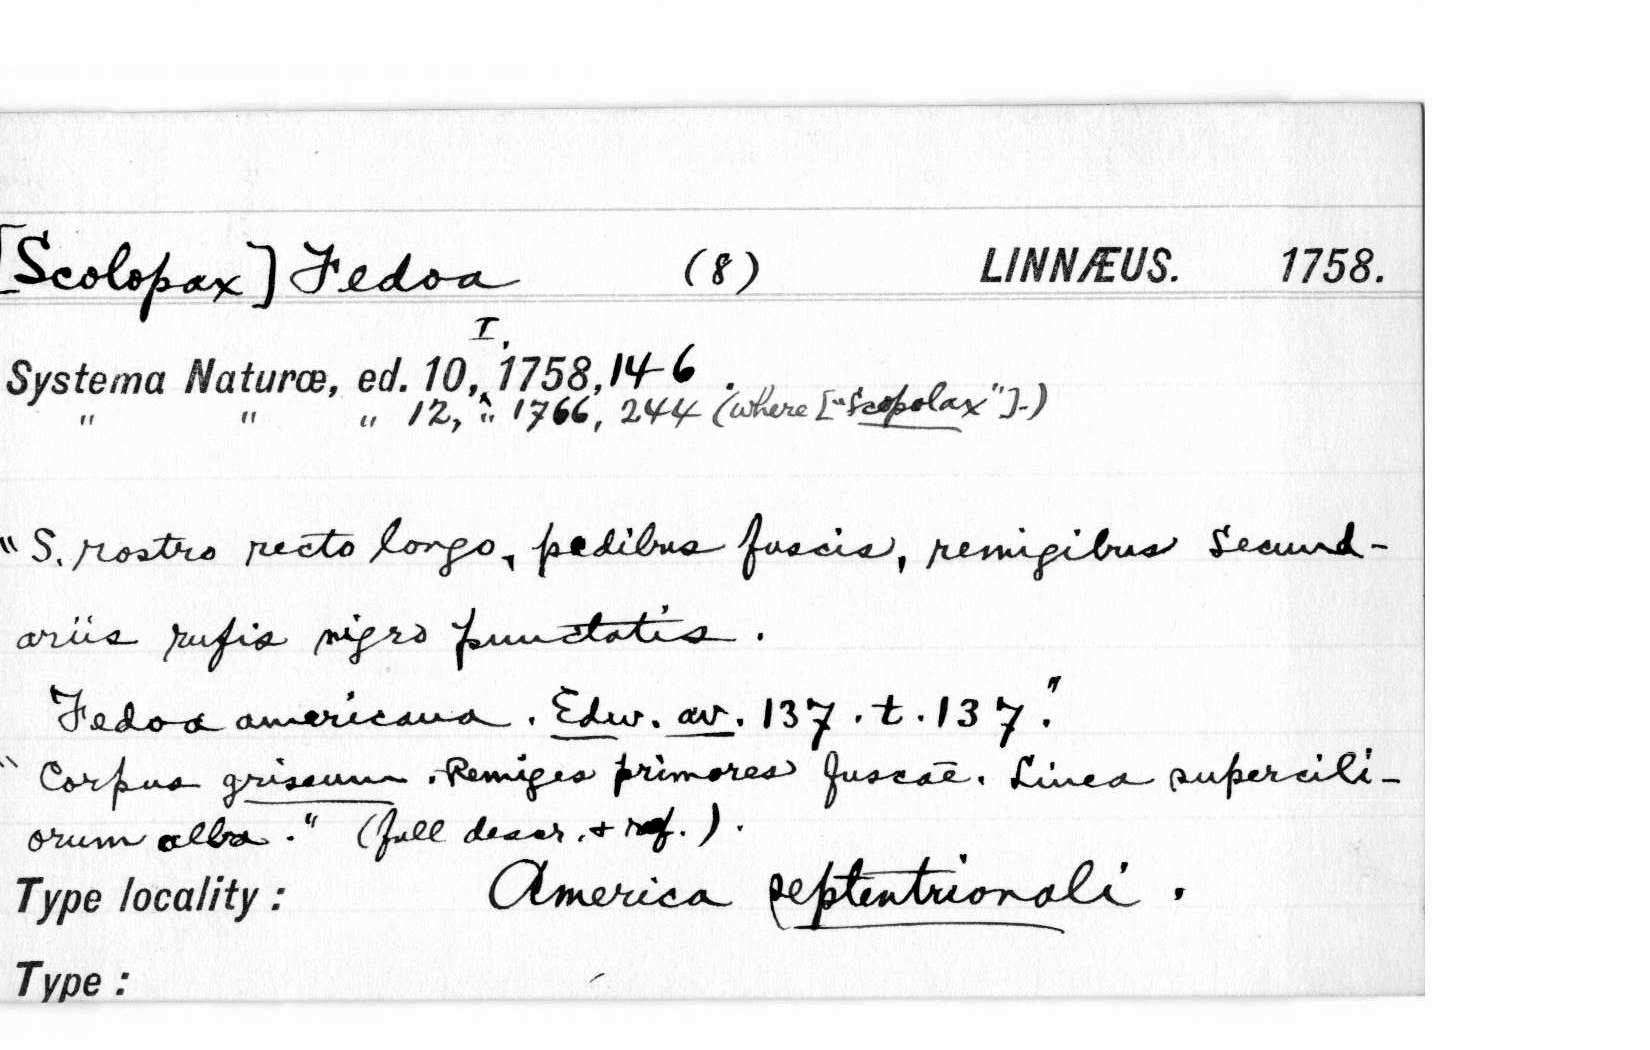 [Scolopax] Fedoa (8) LINNÆUS. 1758.
I.
Systema Naturæ, ed. 10,^ 1758, 146 .
" " " 12, " 1766, 244 (where ["Scopolax"].)
"S. rostro recto longo, pedibus fuscis, remigibus secund-
ariis rufis nigro punctatis.
Fedoa americana. Edw. av. 137. t. 137."
"Corpus griseum. Remiges primores fuscae. Linea supercili-
orum alba." (full descr. + ref.).
Type locality: America septentrionali.
Type: